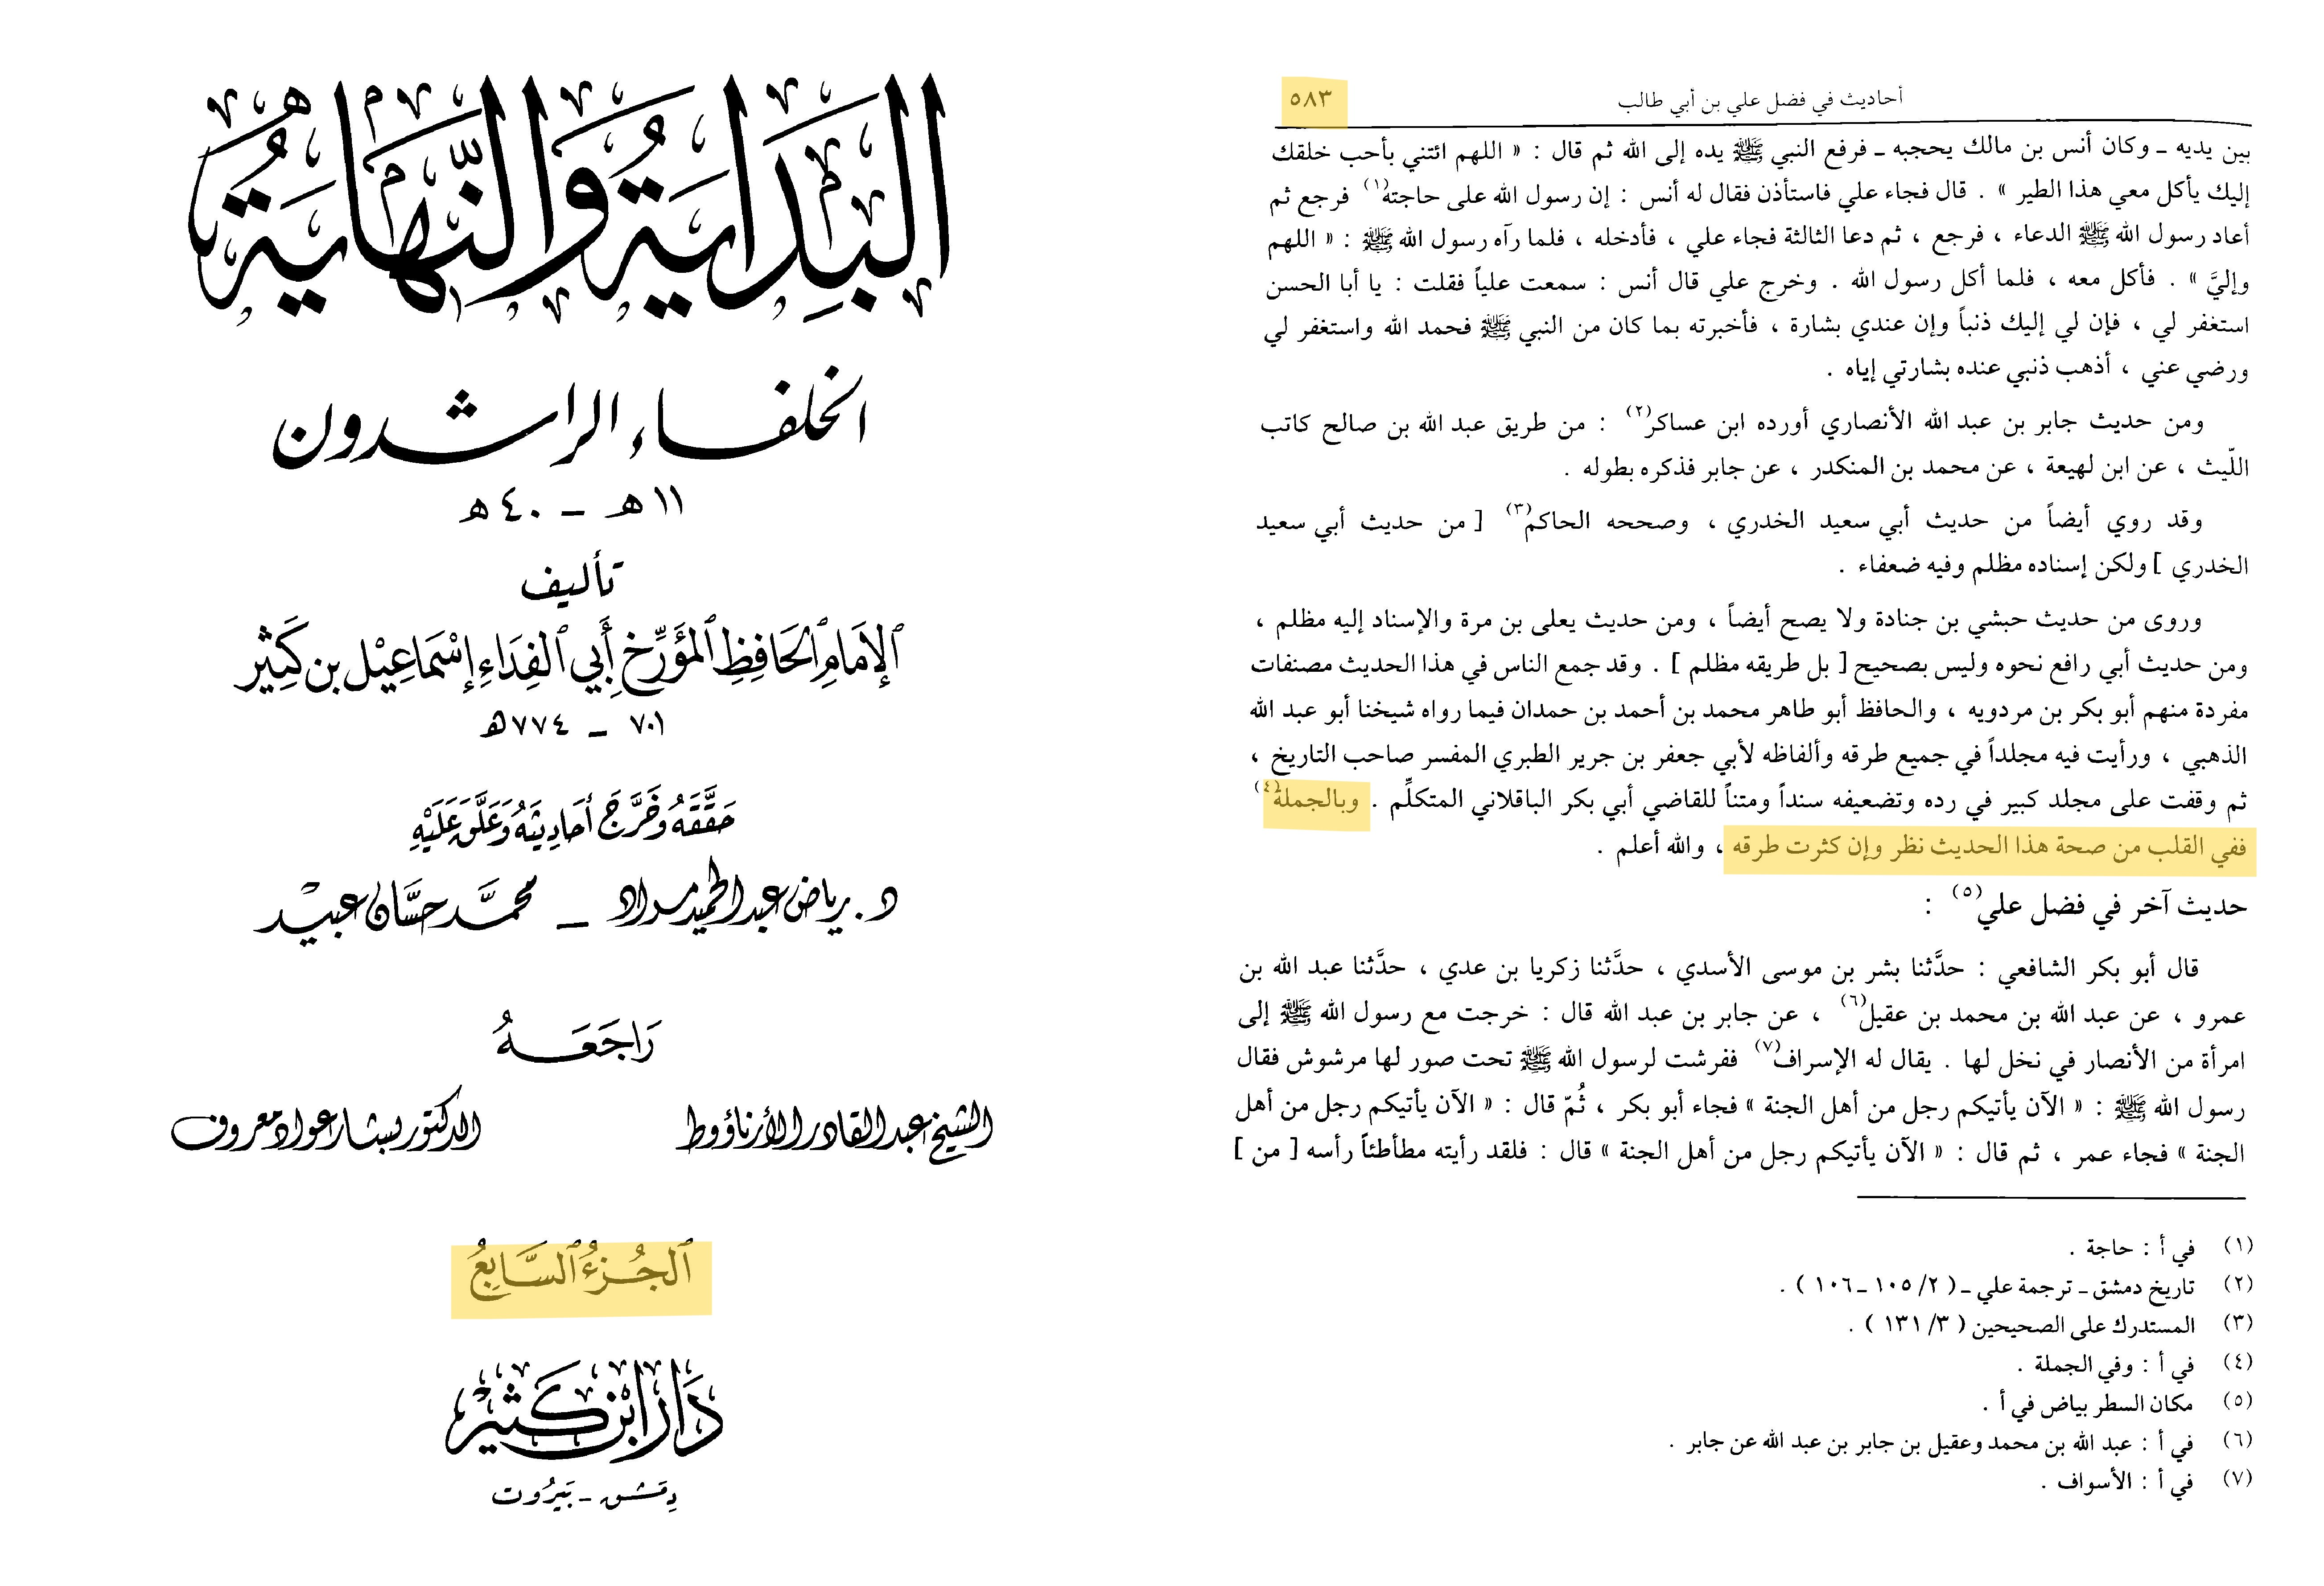 البداية والنهاية
الخلفاء الراشدون
١١ هـ - ٤٠ هـ
تأليف
الإمام الحافظ المؤرخ أبي الفداء إسماعيل بن كثير
٧٠١ - ٧٧٤ هـ
حققه وخرج أحاديثه وعلق عليه
د. رياض عبد الحميد مراد - محمد حسان عبيد
راجعه
الشيخ عبد القادر الأرناؤوط الدكتور بشار عواد معروف
الجزء السابع
دار ابن كثير
دمشق - بيروت
أحاديث في فضل علي بن أبي طالب ٥٨٣
بين يديه - وكان أنس بن مالك يحجبه - فرفع النبي ﷺ يده إلى الله ثم قال : « اللهم ائتني بأحب خلقك
إليك يأكل معي هذا الطير » . قال فجاء علي فاستأذن فقال له أنس : إن رسول الله على حاجته(١) فرجع ثم
أعاد رسول الله ﷺ الدعاء ، فرجع ، ثم دعا الثالثة فجاء علي ، فأدخله ، فلما رآه رسول الله ﷺ : « اللهم
وإليَّ » . فأكل معه ، فلما أكل رسول الله . وخرج علي قال أنس : سمعت علياً فقلت : يا أبا الحسن
استغفر لي ، فإن لي إليك ذنباً وإن عندي بشارة ، فأخبرته بما كان من النبي ﷺ فحمد الله واستغفر لي
ورضي عني ، أذهب ذنبي عنده بشارتي إياه .
ومن حديث جابر بن عبد الله الأنصاري أورده ابن عساكر(٢) : من طريق عبد الله بن صالح كاتب
اللّيث ، عن ابن لهيعة ، عن محمد بن المنكدر ، عن جابر فذكره بطوله .
وقد روي أيضاً من حديث أبي سعيد الخدري ، وصححه الحاكم(٣) [ من حديث أبي سعيد
الخدري ] ولكن إسناده مظلم وفيه ضعفاء .
وروى من حديث حبشي بن جنادة ولا يصح أيضاً ، ومن حديث يعلى بن مرة والإسناد إليه مظلم ،
ومن حديث أبي رافع نحوه وليس بصحيح [ بل طريقه مظلم ] . وقد جمع الناس في هذا الحديث مصنفات
مفردة منهم أبو بكر بن مردويه ، والحافظ أبو طاهر محمد بن أحمد بن حمدان فيما رواه شيخنا أبو عبد الله
الذهبي ، ورأيت فيه مجلداً في جميع طرقه وألفاظه لأبي جعفر بن جرير الطبري المفسر صاحب التاريخ ،
ثم وقفت على مجلد كبير في رده وتضعيفه سنداً ومتناً للقاضي أبي بكر الباقلاني المتكلِّم . وبالجملة(٤)
ففي القلب من صحة هذا الحديث نظر وإن كثرت طرقه ، والله أعلم .
حديث آخر في فضل علي(٥) :
قال أبو بكر الشافعي : حدَّثنا بشر بن موسى الأسدي ، حدَّثنا زكريا بن عدي ، حدَّثنا عبد الله بن
عمرو ، عن عبد الله بن محمد بن عقيل(٦) ، عن جابر بن عبد الله قال : خرجت مع رسول الله ﷺ إلى
امرأة من الأنصار في نخل لها . يقال له الإسراف(٧) ففرشت لرسول الله ﷺ تحت صور لها مرشوش فقال
رسول الله ﷺ : « الآن يأتيكم رجل من أهل الجنة » فجاء أبو بكر ، ثُمّ قال : « الآن يأتيكم رجل من أهل
الجنة » فجاء عمر ، ثم قال : « الآن يأتيكم رجل من أهل الجنة » قال : فلقد رأيته مطأطئاً رأسه [ من ]
(١) في أ : حاجة .
(٢) تاريخ دمشق - ترجمة علي - ( ٢/ ١٠٥ - ١٠٦ ) .
(٣) المستدرك على الصحيحين ( ٣/ ١٣١ ) .
(٤) في أ : وفي الجملة .
(٥) مكان السطر بياض في أ .
(٦) في أ : عبد الله بن محمد وعقيل بن جابر بن عبد الله عن جابر .
(٧) في أ : الأسواف .